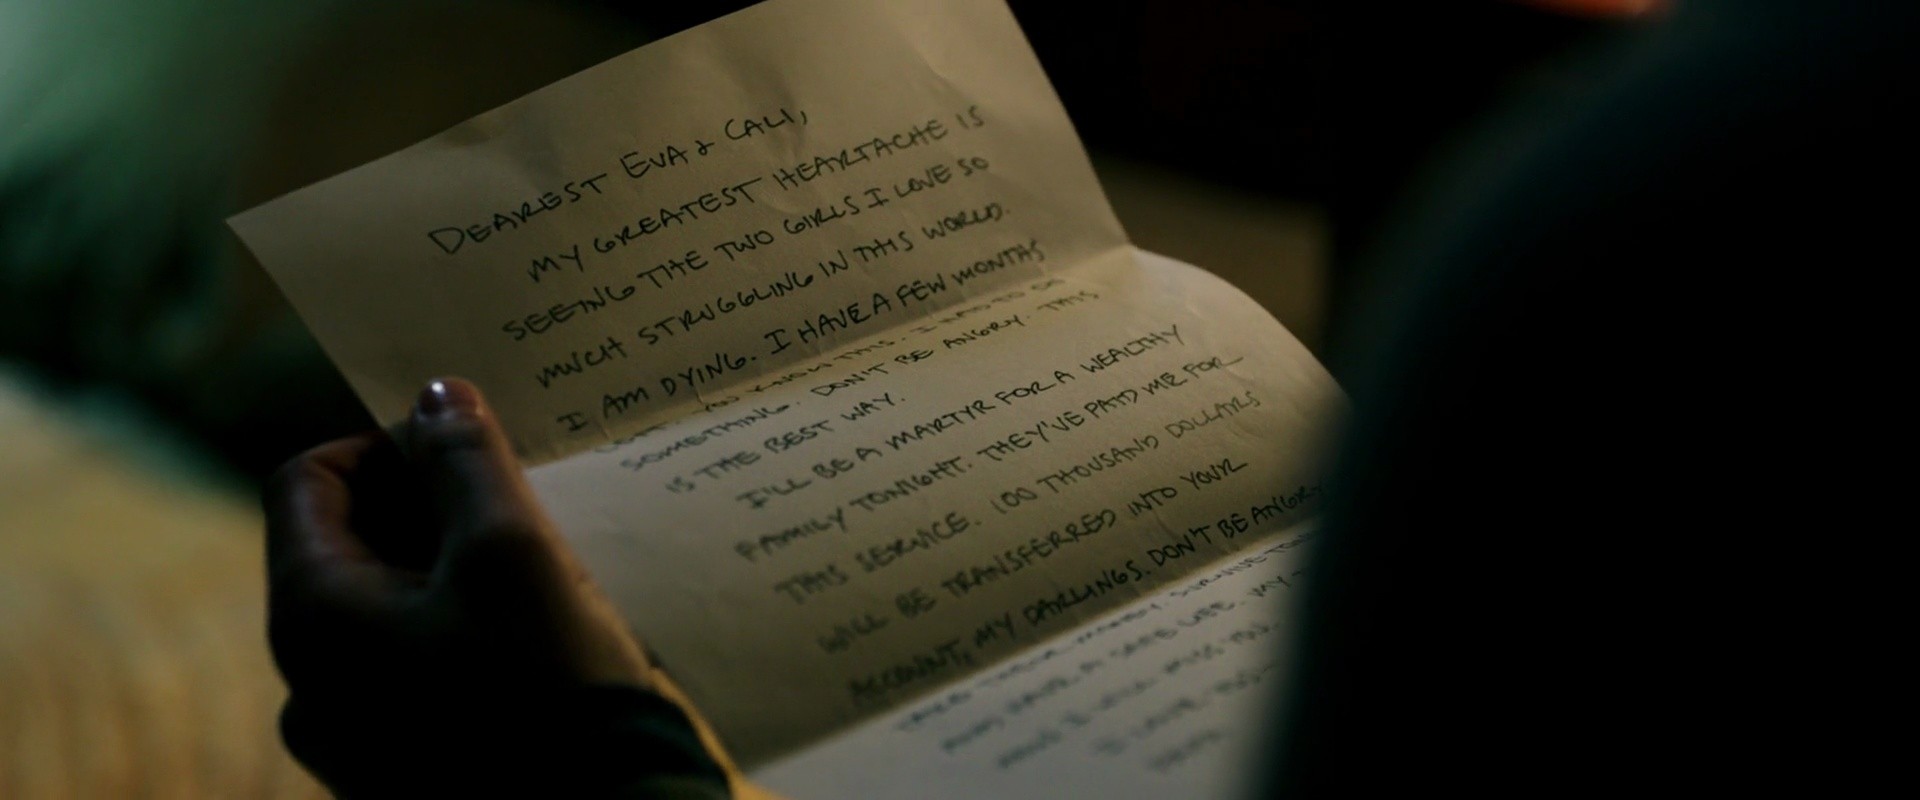 DEAREST EVA & CALI,
MY GREATEST HEARTACHE IS
SEEING THE TWO GIRLS I LOVE SO
MUCH STRUGGLING IN THIS WORLD.
I AM DYING. I HAVE A FEW MONTHS
YOU KNOW THIS. I HAD TO DO
SOMETHING. DON'T BE ANGRY. THIS
IS THE BEST WAY.
I'LL BE A MARTYR FOR A WEALTHY
FAMILY TONIGHT. THEY'VE PAID ME FOR
THIS SERVICE. 100 THOUSAND DOLLARS
WILL BE TRANSFERRED INTO YOUR
ACCOUNT, MY DARLINGS. DON'T BE ANGRY.
MONEY. SURVIVE
HAVE A SAFE LIFE. MY
I WILL MISS YOU.